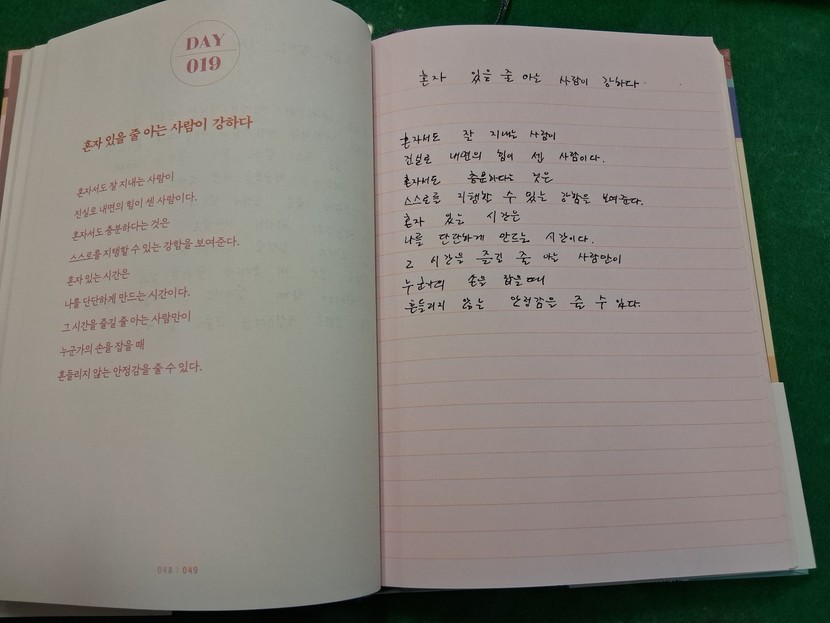 DAY
019
혼자 있을 줄 아는 사람이 강하다
혼자서도 잘 지내는 사람이
진실로 내면의 힘이 센 사람이다.
혼자서도 충분하다는 것은
스스로를 지탱할 수 있는 강함을 보여준다.
혼자 있는 시간은
나를 단단하게 만드는 시간이다.
그 시간을 즐길 줄 아는 사람만이
누군가의 손을 잡을 때
흔들리지 않는 안정감을 줄 수 있다.
048 : 049
혼자 있을 줄 아는 사람이 강하다
혼자서도 잘 지내는 사람이
진실로 내면의 힘이 센 사람이다.
혼자서도 충분하다는 것은
스스로를 지탱할 수 있는 강함을 보여준다.
혼자 있는 시간은
나를 단단하게 만드는 시간이다.
그 시간을 즐길 줄 아는 사람만이
누군가의 손을 잡을 때
흔들리지 않는 안정감을 줄 수 있다.